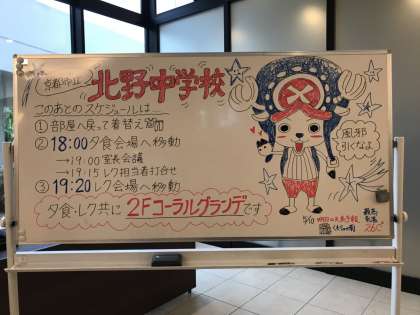 京都市立
北野中学校
このあとのスケジュールは
①部屋へ戻って着替え
②18:00夕食会場へ移動
→19:00室長会議
→19:15レク担当者打合せ
③19:20レク会場へ移動
夕食・レク共に2Fコーラルグランデです
風邪
引くなよ
明日の天気予報
最高
気温
26℃